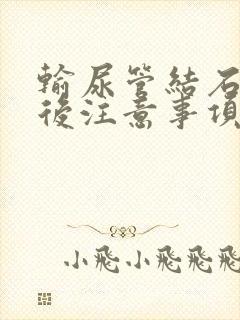 輸尿管結石
後注意事項
小飛小飛飛飛